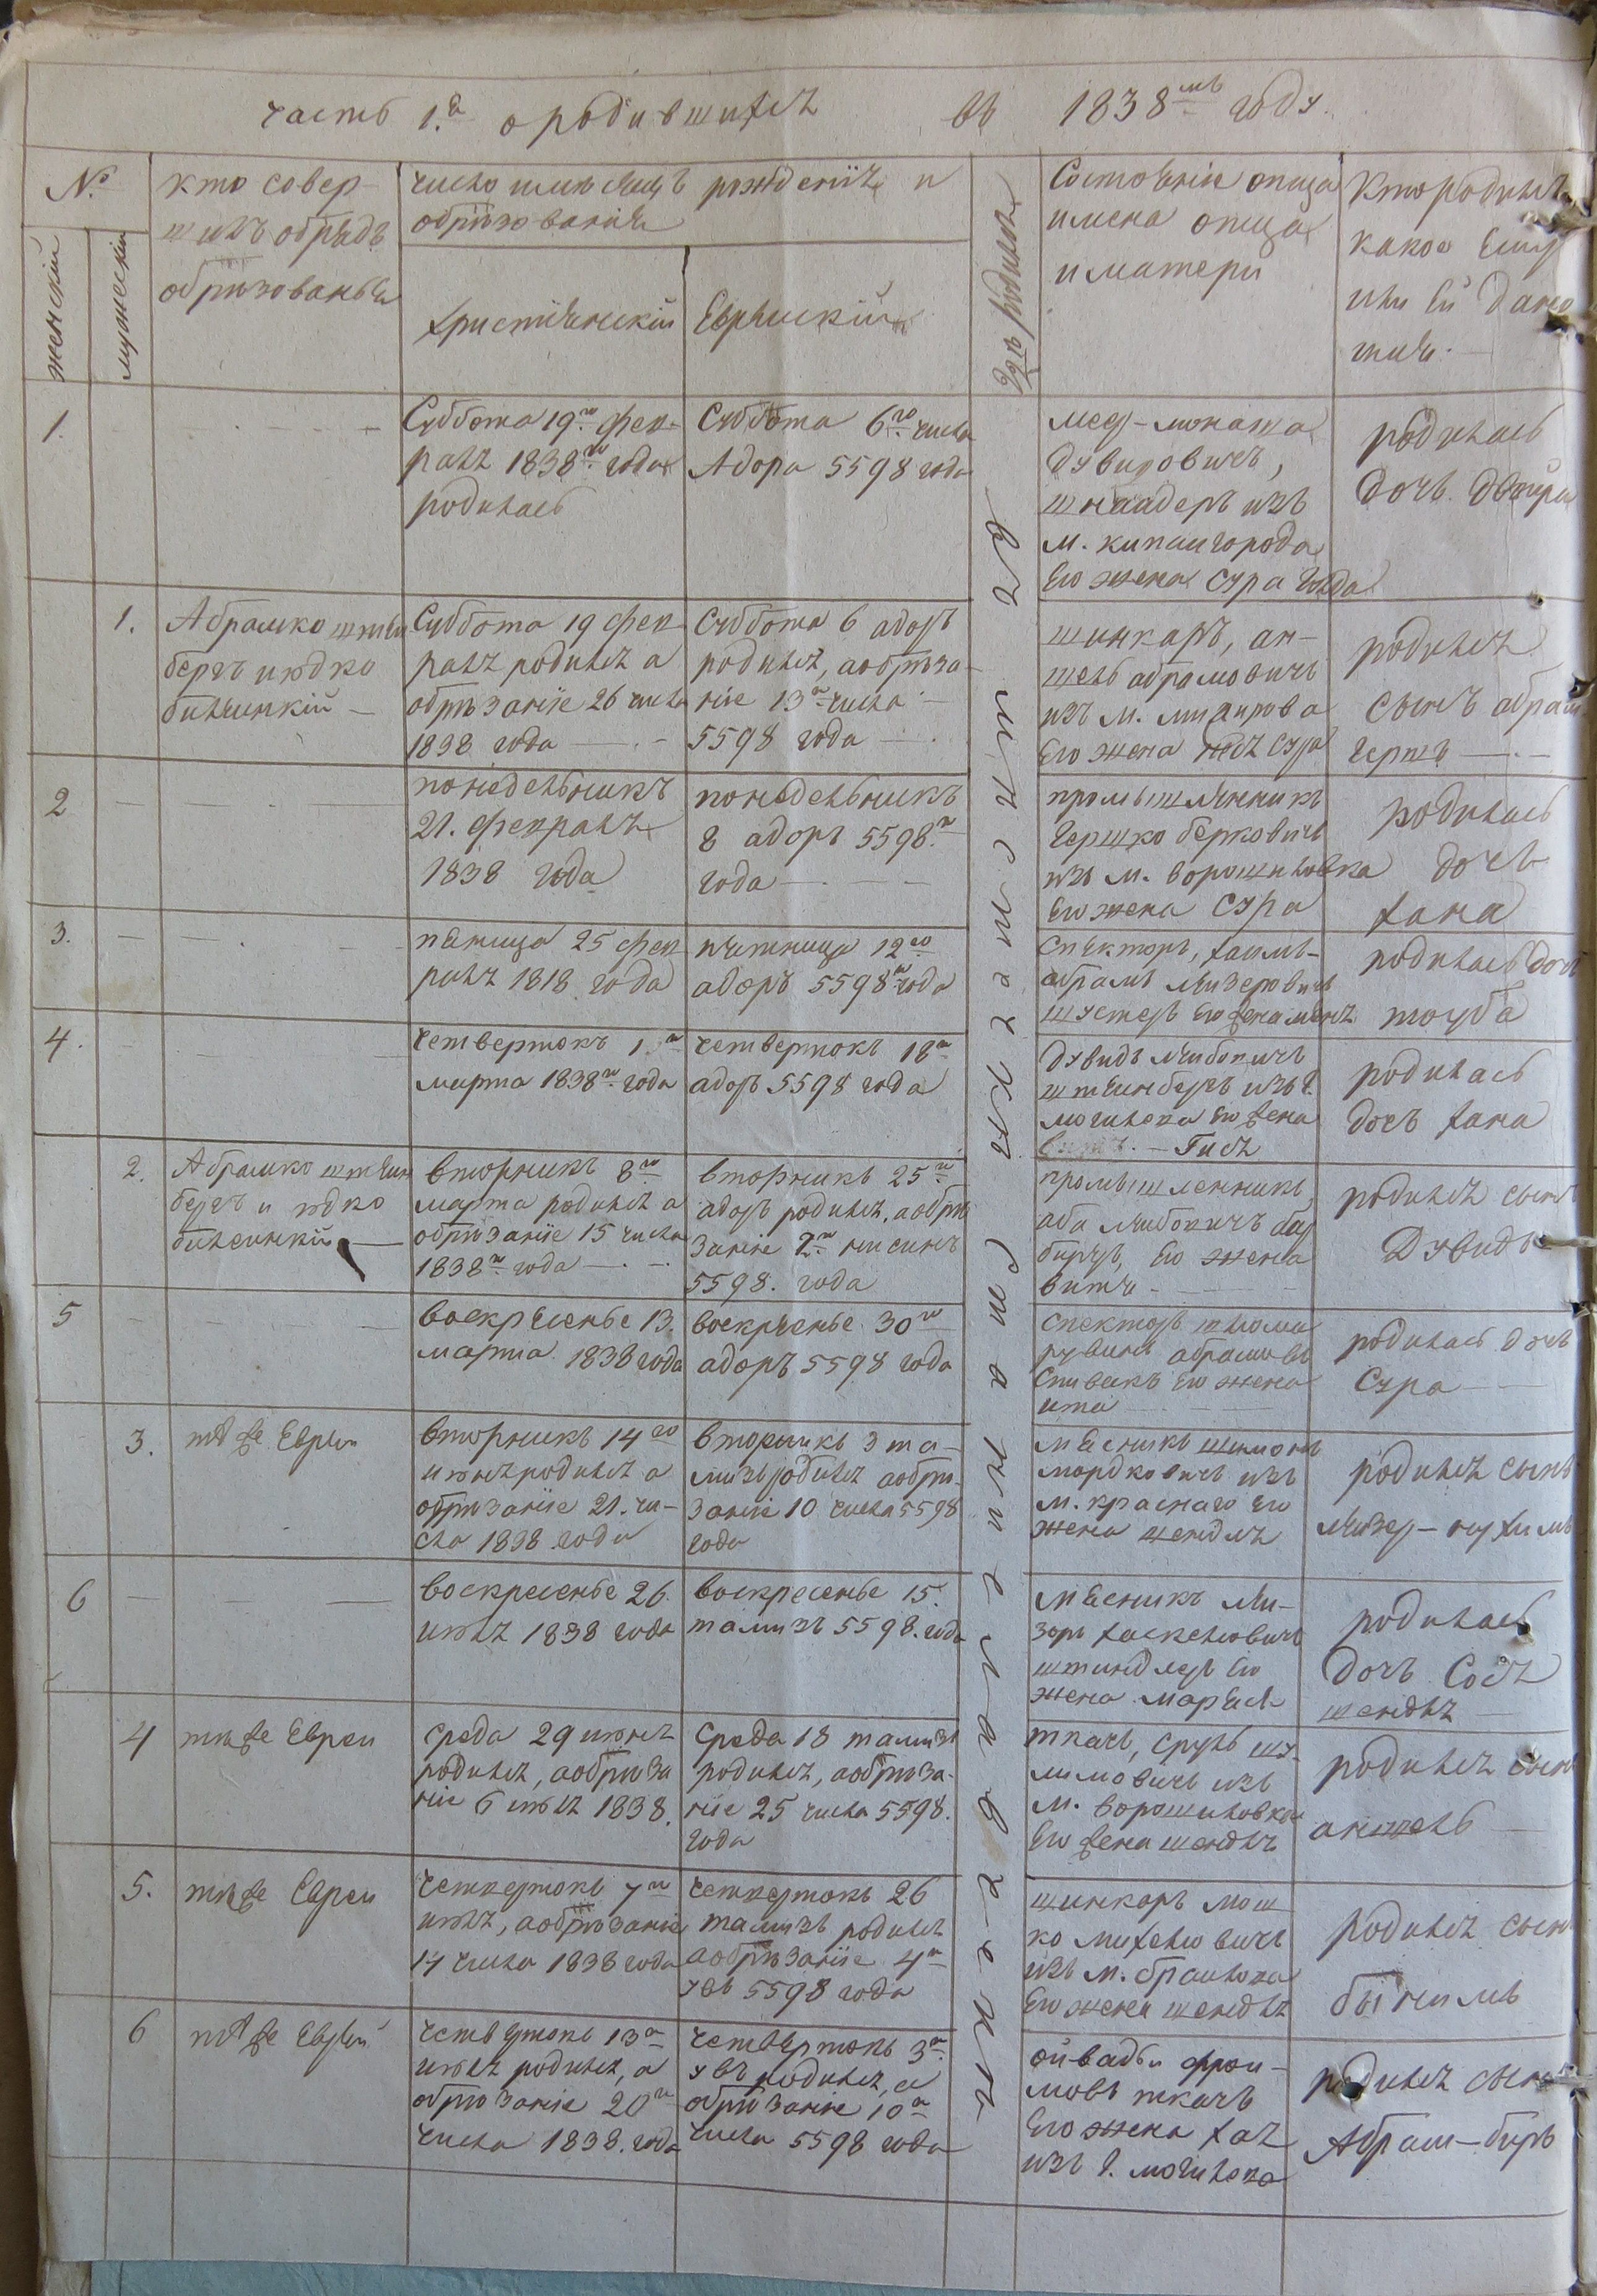 часть 1.я о родившихся въ 1838мъ году.
№.
женскій
мужескій
кто совер-
шилъ обрядъ
обрѣзованья
число и мѣсяцъ рожденія и
обрѣзованія
христіянскій
Еврейскій
Где родился
Состояніе отца
имена отца
и матери
Кто родился
какое Ему
или Ей дано
1.
Суббота 19го фев-
раля 1838го года
родилась
Суббота 6го числа
Адора 5598 года
Дувидовичъ,
шнаадеръ изъ
Его жена Сура
родилась
дочь Двойра
1.
Абрамко штейн
бергъ июдко
Суббота 19 фев-
раля родился а
обрѣзаніе 26 числа
1838 года
Суббота 6 адоръ
родился, а обрѣза-
ніе 13го числа
5598 года
шинкаръ, ан-
шель абрамовичъ
изъ м.
Его жена Сура
родился
сынъ абрам
гершъ
2
понедельникъ
21. февраля
1838 года
понедельникъ
8 адоръ 5598го
года
промышленникъ
Гершко берковичъ
изъ м. ворошиловка
Его жена Сура
родилась
дочь
хана
3.
пяница 25 фев
раля 1818 года
пятница 12го
адоръ 5598го года
Спекторъ, хаимъ-
абрамъ лейзеровичъ
шустеръ Его жена
родилась доч
тоуба
4.
четвертокъ 1го
марта 1838го года
четвертокъ 18го
адоръ 5598 года
Дувидъ лейбовичъ
штейнбергъ изъ г.
могилева Его жена
Гися
родилась
дочъ хана
2.
Абрамко штейн
бергъ и юдко
вторникъ 8го
марта родился а
обрѣзаніе 15 числа
1838го года
вторникъ 25го
адоръ родился, а обрѣ
заніе 2го нисинъ
5598. года
промышленникъ
аба лейбовичъ
Его жена
родился сынъ
Дувидъ
5
воскрѣсенье 13.
марта 1838 года
воскрѣсенье 30го
адоръ 5598 года
спекторъ
рувинъ
Спивакъ Его жена
ита
родилась дочъ
Сура
3.
тѣ же Евреи
вторникъ 14го
июня родился а
обрѣзаніе 21. чи-
сла 1838 года
вторникъ 3 та-
мизъ родился а обрѣ-
заніе 10 числа 5598
года
мясникъ шимонъ
мордковичъ изъ
м. краснаго Его
жена шендля
родился сынъ
лейзер-нухимъ
6
воскресенье 26
июня 1838 года
воскресенье 15.
тамизъ 5598. года
мясникъ лей-
зоръ хаскелиовичъ
Его
жена Марьям
родилась
дочь Сося
шендля
4
тѣ же Евреи
Среда 29 июня
родился, а обрѣза
ніе 6 июля 1838.
Среда 18 тамизъ
родился, а обрѣза-
ніе 25 числа 5598.
года
ткачъ, сруль шу-
лимовичъ изъ
м. ворошиловки
Его жена шендля
родился сынъ
аншель
5.
тѣ же Евреи
четвертокъ 7го
июля, а обрѣзаніе
14 числа 1838 года
четвертокъ 26
тамизъ родился
а обрѣзаніе 4го
увъ 5598 года
шинкаръ мош
ко михелиовичъ
изъ м. браилова
Его жена шендля
родился сынъ
6
тѣ же Еврей
четвертокъ 13го
июля родился, а
обрѣзаніе 20го
числа 1838. года
четвертокъ 3го
увъ родился, а
обрѣзаніе 10го
числа 5598 года
мовъ ткачъ
Его жена хая
изъ г. могилева
родился сынъ
Абрам-беръ